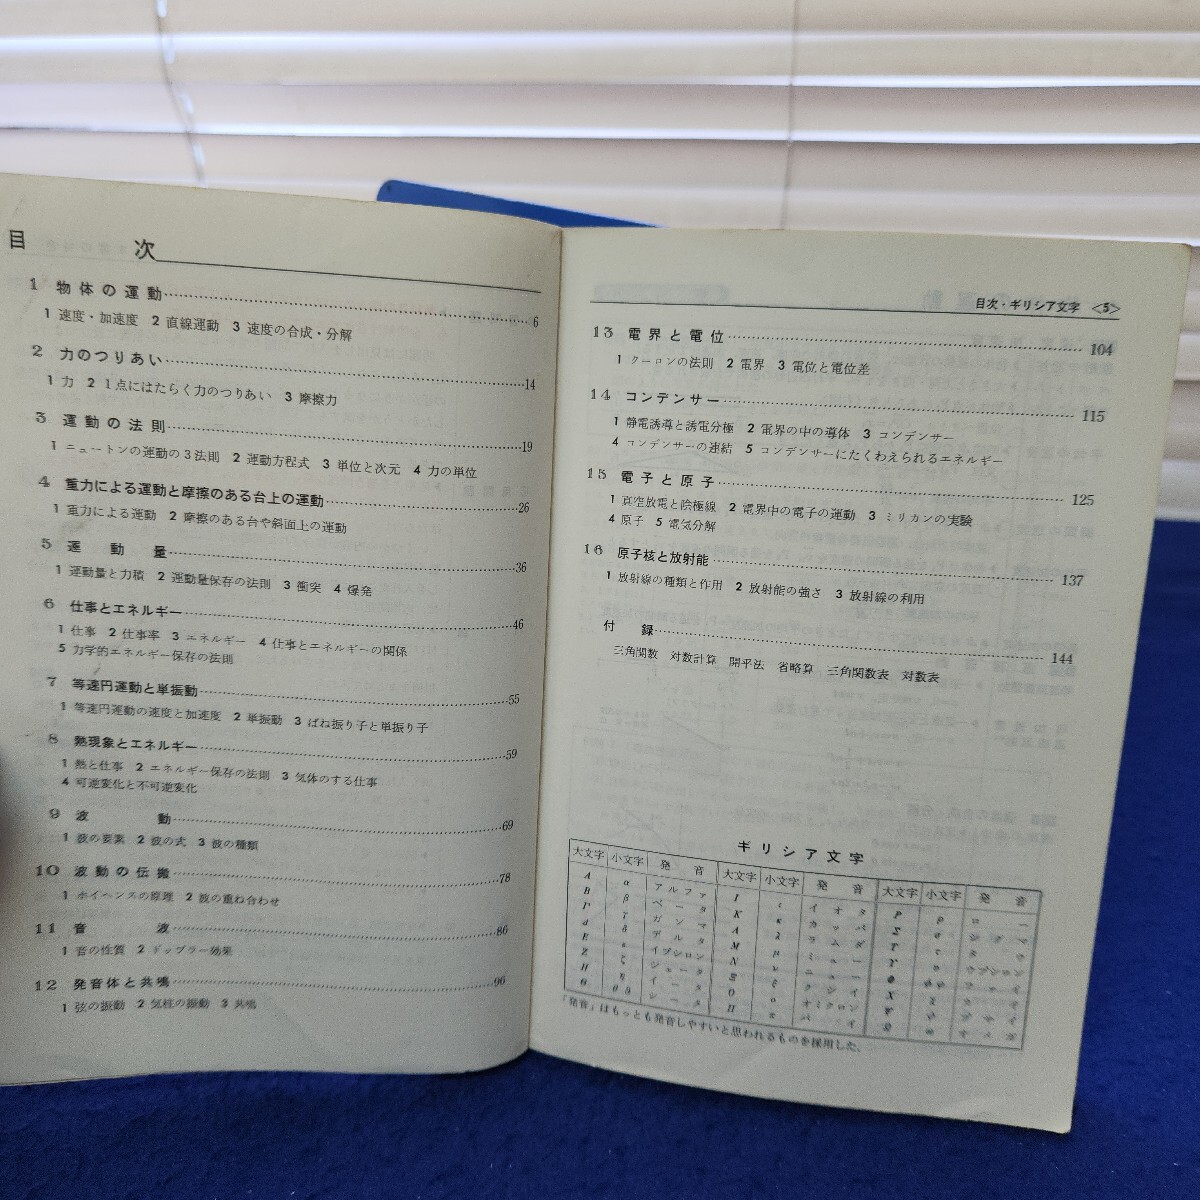 目次
1 物体の運動……6
1 速度・加速度 2 直線運動 3 速度の合成・分解
2 力のつりあい……14
1 力 2 1点にはたらく力のつりあい 3 摩擦力
3 運動の法則……19
1 ニュートンの運動の3法則 2 運動方程式 3 単位と次元 4 力の単位
4 重力による運動と摩擦のある台上の運動……26
1 重力による運動 2 摩擦のある台や斜面上の運動
5 運動量……36
1 運動量と力積 2 運動量保存の法則 3 衝突 4 爆発
6 仕事とエネルギー……46
1 仕事 2 仕事率 3 エネルギー 4 仕事とエネルギーの関係
5 力学的エネルギー保存の法則
7 等速円運動と単振動……55
1 等速円運動の速度と加速度 2 単振動 3 ばね振り子と単振り子
8 熱現象とエネルギー……59
1 熱と仕事 2 エネルギー保存の法則 3 気体のする仕事
4 可逆変化と不可逆変化
9 波動……69
1 波の要素 2 波の式 3 波の種類
10 波動の伝搬……78
1 ホイヘンスの原理 2 波の重ね合わせ
11 音波……86
1 音の性質 2 ドップラー効果
12 発音体と共鳴……96
1 弦の振動 2 気柱の振動 3 共鳴
目次・ギリシア文字 〈5〉
13 電界と電位……104
1 クーロンの法則 2 電界 3 電位と電位差
14 コンデンサー……115
1 静電誘導と誘電分極 2 電界の中の導体 3 コンデンサー
4 コンデンサーの連結 5 コンデンサーにたくわえられるエネルギー
15 電子と原子……125
1 真空放電と陰極線 2 電界中の電子の運動 3 ミリカンの実験
4 原子 5 電気分解
16 原子核と放射能……137
1 放射線の種類と作用 2 放射能の強さ 3 放射線の利用
付録……144
三角関数 対数計算 開平法 省略算 三角関数表 対数表
ギリシア文字
大文字 小文字 発音 大文字 小文字 発音 大文字 小文字 発音
A α アルファ I ι イオタ P ρ ロー
B β ベータ K κ カッパ Σ σ シグマ
Γ γ ガンマ Λ λ ラムダ T τ
δ デルタ M μ ミュー υ ウプシロン
E ε イプシロン N ν ニュー Φ
Z ζ ジェータ Ξ ξ クシイ X χ
H η イータ O ο オミクロン Ψ ψ
Θ θ シータ π パイ Ω ω オメガ
「発音」はもっとも発音しやすいと思われるものを採用した.